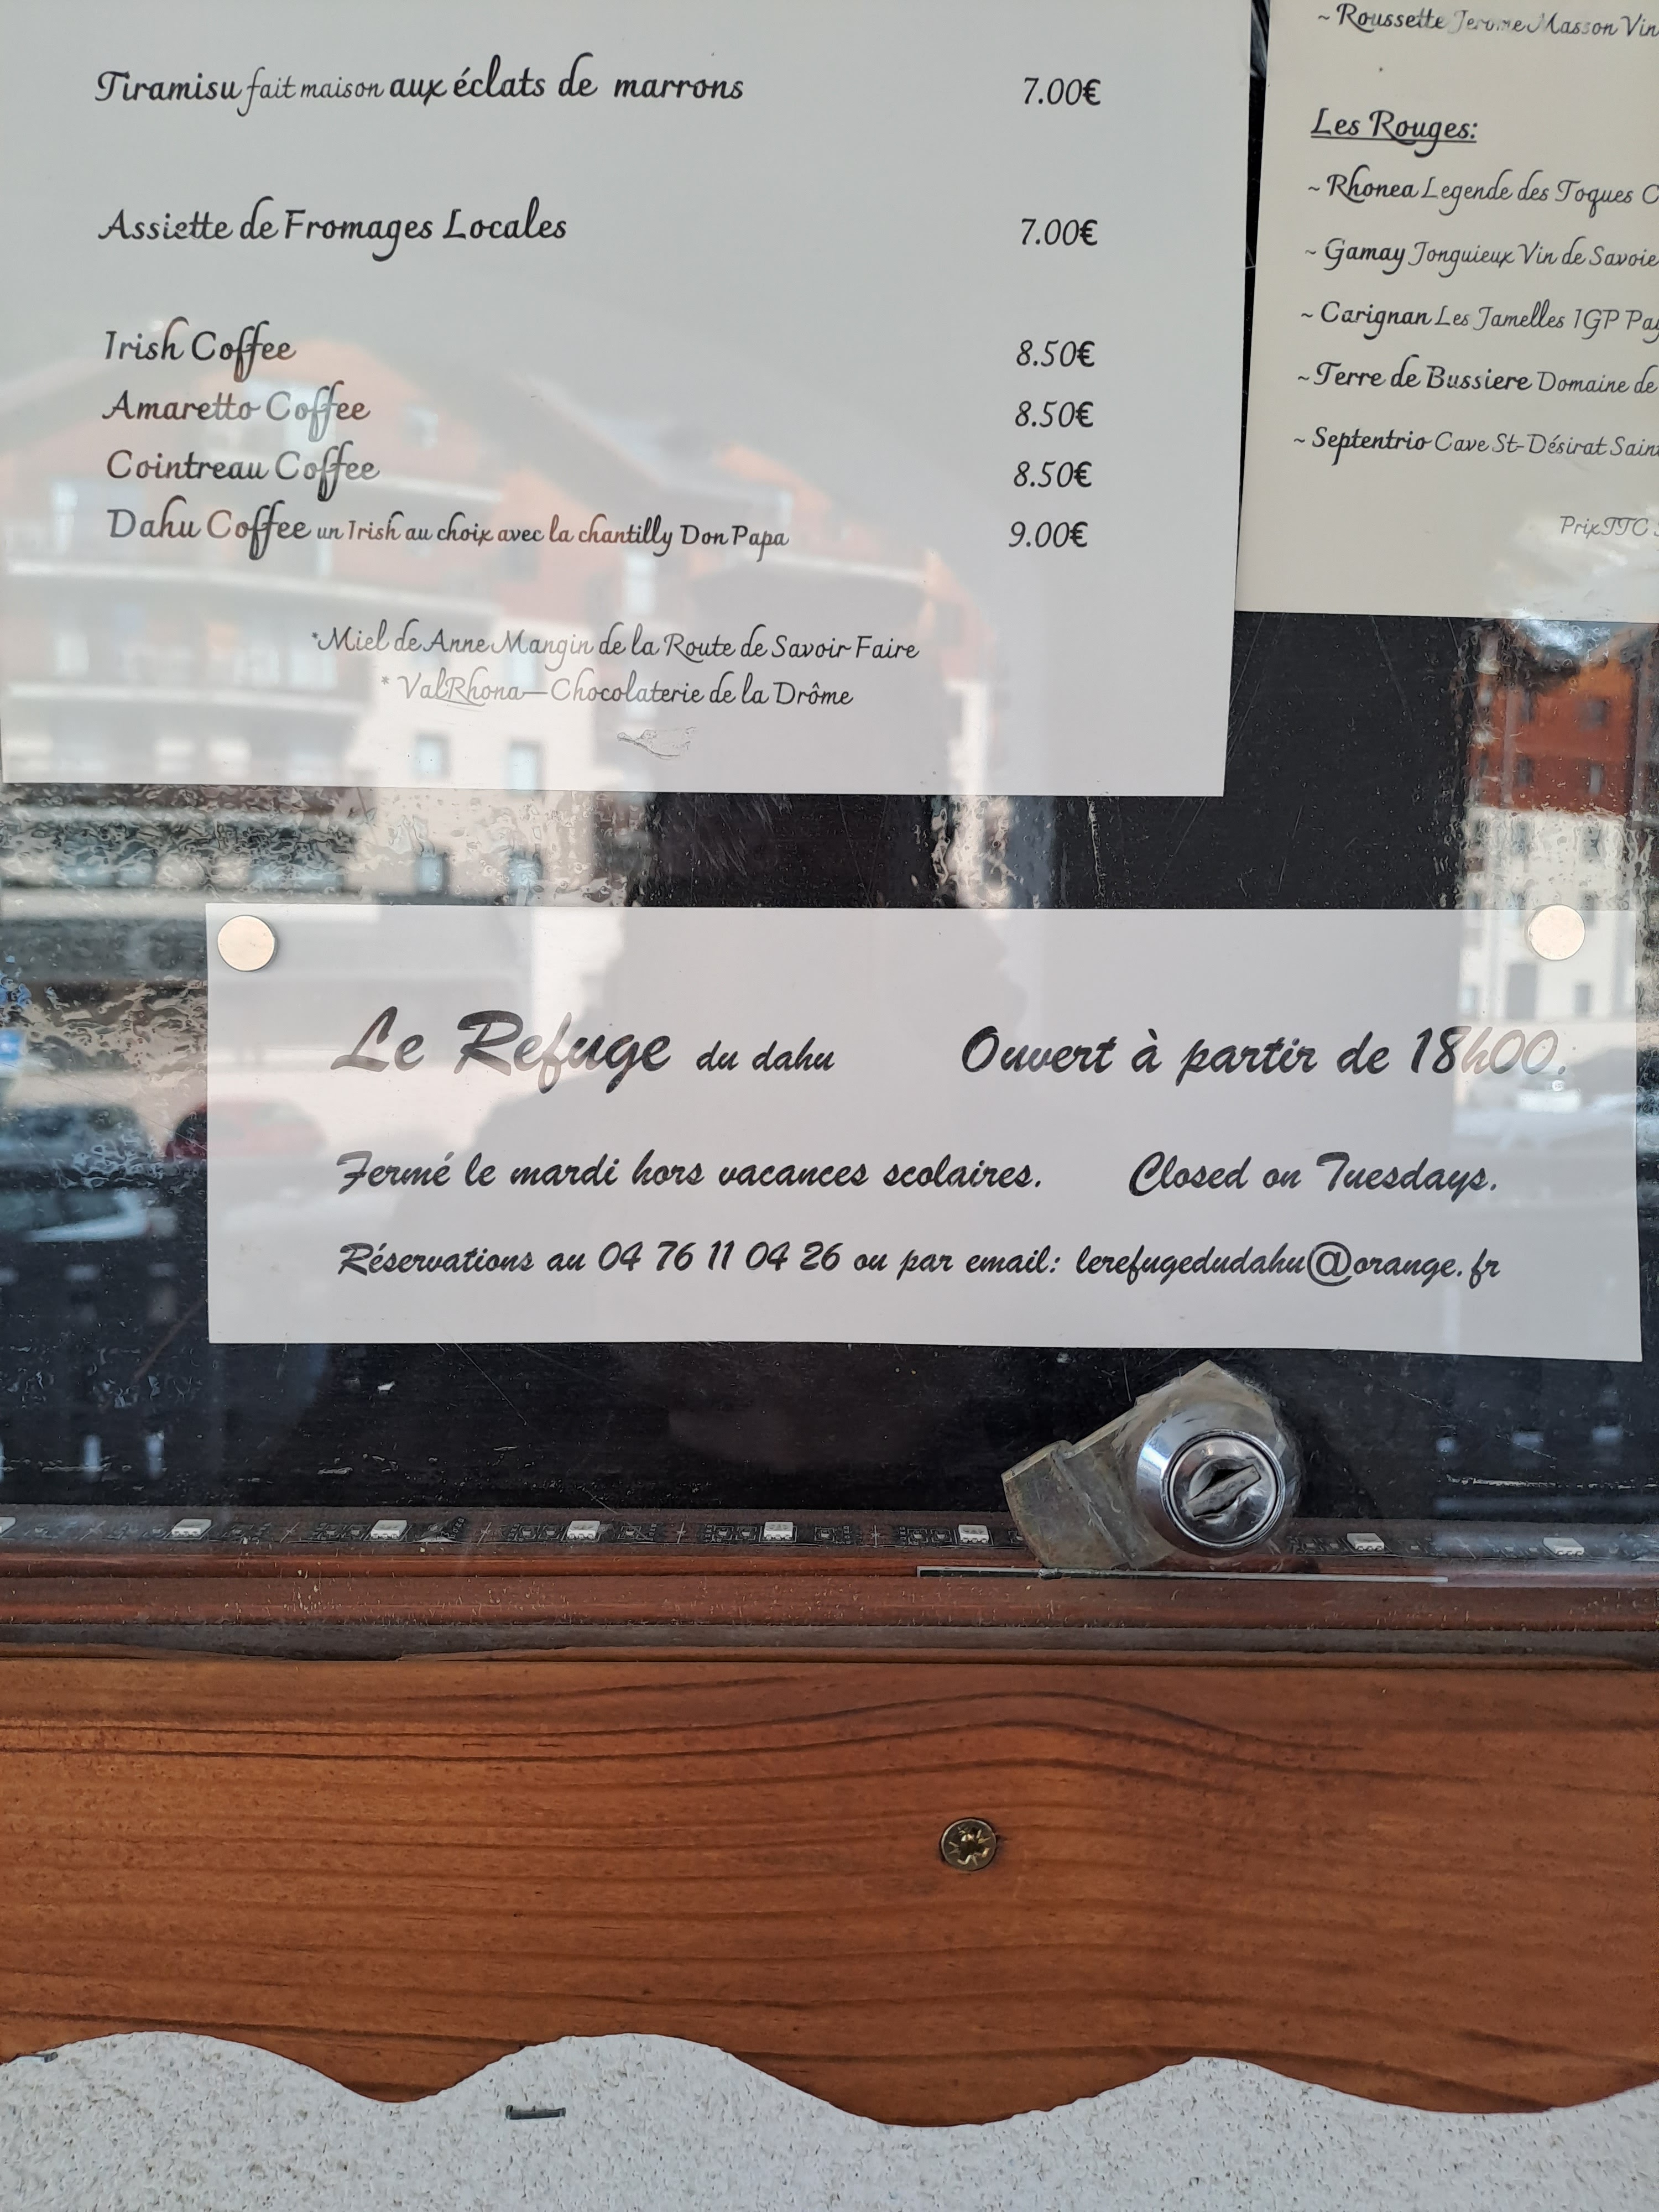 Tiramisu fait maison aux éclats de marrons 7.00€
Assiette de Fromages Locales 7.00€
Irish Coffee 8.50€
Amaretto Coffee 8.50€
Cointreau Coffee 8.50€
Dahu Coffee un Irish au choix avec la chantilly Don Papa 9.00€
*Miel de Anne Mangin de la Route de Savoir Faire
* ValRhona—Chocolaterie de la Drôme
~ Roussette Jerome Masson Vin
Les Rouges:
~ Rhonea Legende des Toques C
~ Gamay Jonguieux Vin de Savoie
~ Carignan Les Jamelles IGP Pay
~ Terre de Bussiere Domaine de
~ Septentrio Cave St-Désirat Saint
Prix TTC
Le Refuge du dahu Ouvert à partir de 18h00.
Fermé le mardi hors vacances scolaires. Closed on Tuesdays.
Réservations au 04 76 11 04 26 ou par email: lerefugedudahu@orange.fr